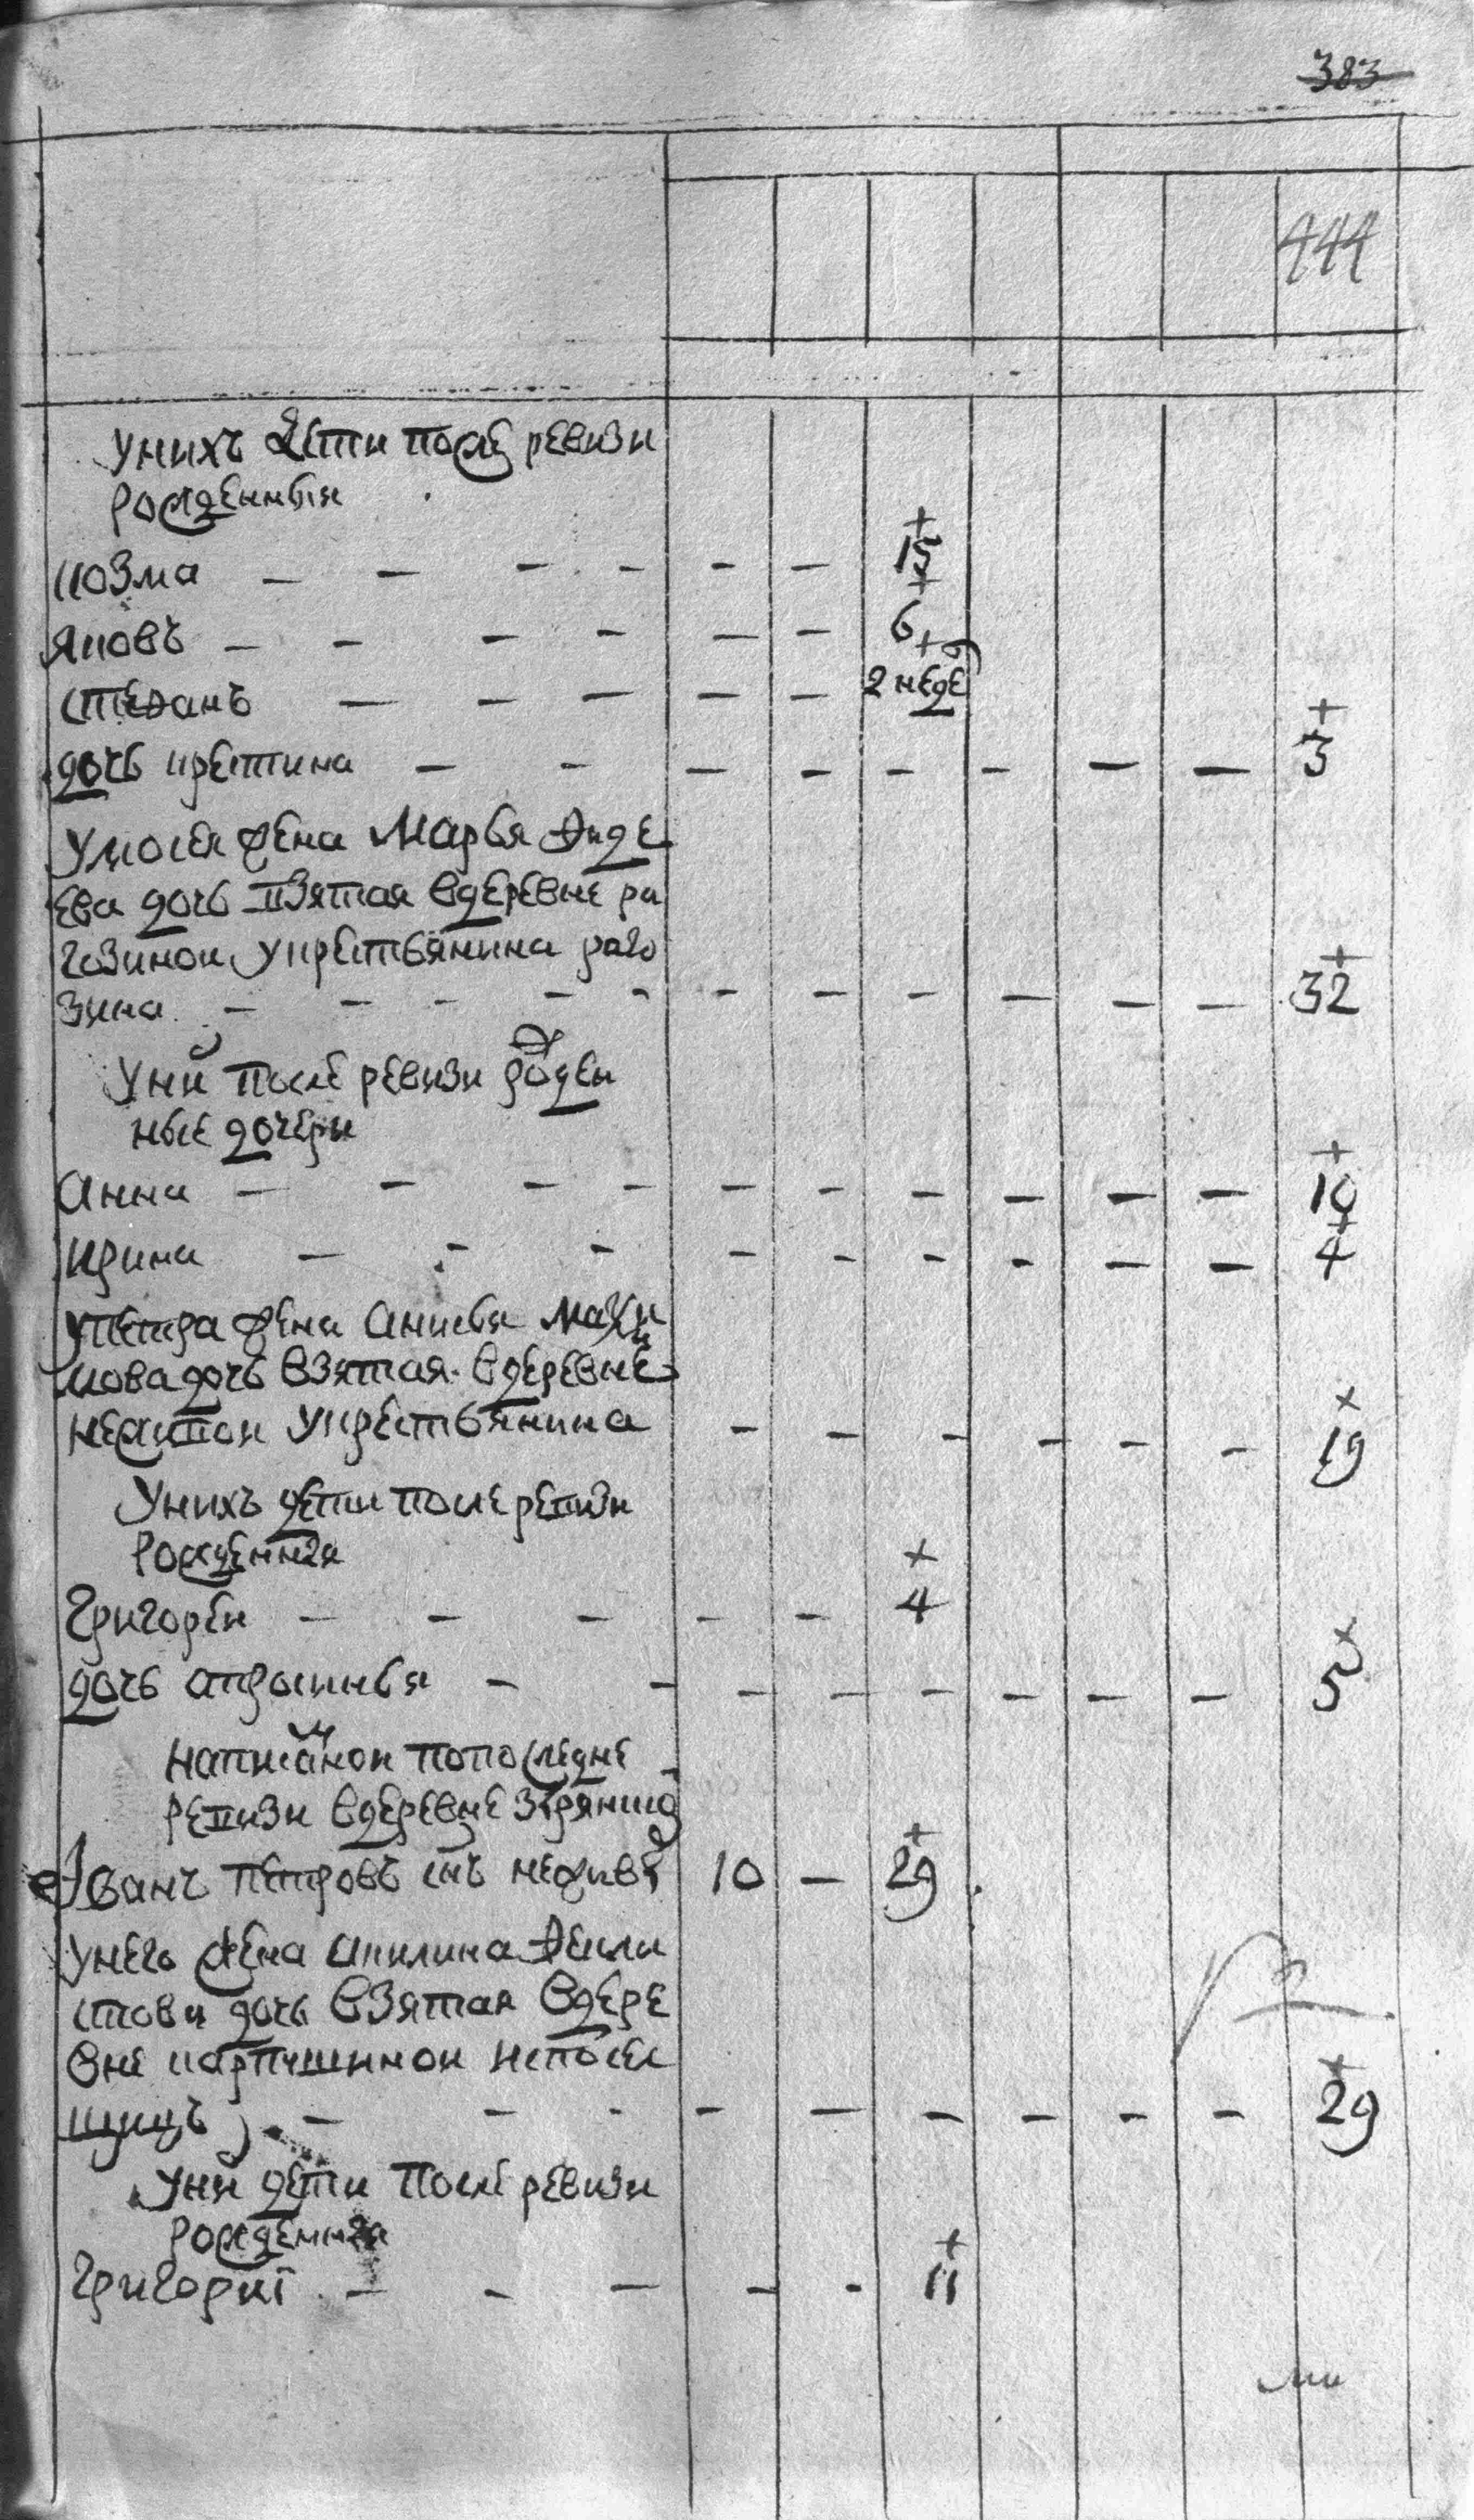 383
444
Унихъ дети после ревизи
рожденныя
козма — — — — — — 15
яковъ — — — — — — 6
степанъ — — — — — 2 неде
дочь крестина — — — — — — — — 3
Умосея жена Марья Фаде
ева дочь взятая вдеревне ра
гозиной укрестьянина раго
зина — — — — — — — — — — — 32
Уних после ревизи рожден
ные дочери
Анна — — — — — — — — — — 10
ирина — — — — — — — — — 4
упетра жена Анисья Макси
мова дочь взятая вдеревне
укрестьянина — — — — — — 19
Унихъ дети после ревизи
рожденныя
Григорей — — — — — 4
дочь апросинья — — — — — — — — 5
написанной попоследне
ревизи вдеревне зырянкой
Иванъ петровъ снъ неживъ 10 — 29
унего жена акилина Фекли
стова дочь взятая вдере
вне карпушиной испосел
щицъ — — — — — — — — — 29
Уних дети после ревизи
рожденныя
Григорий — — — — — 11